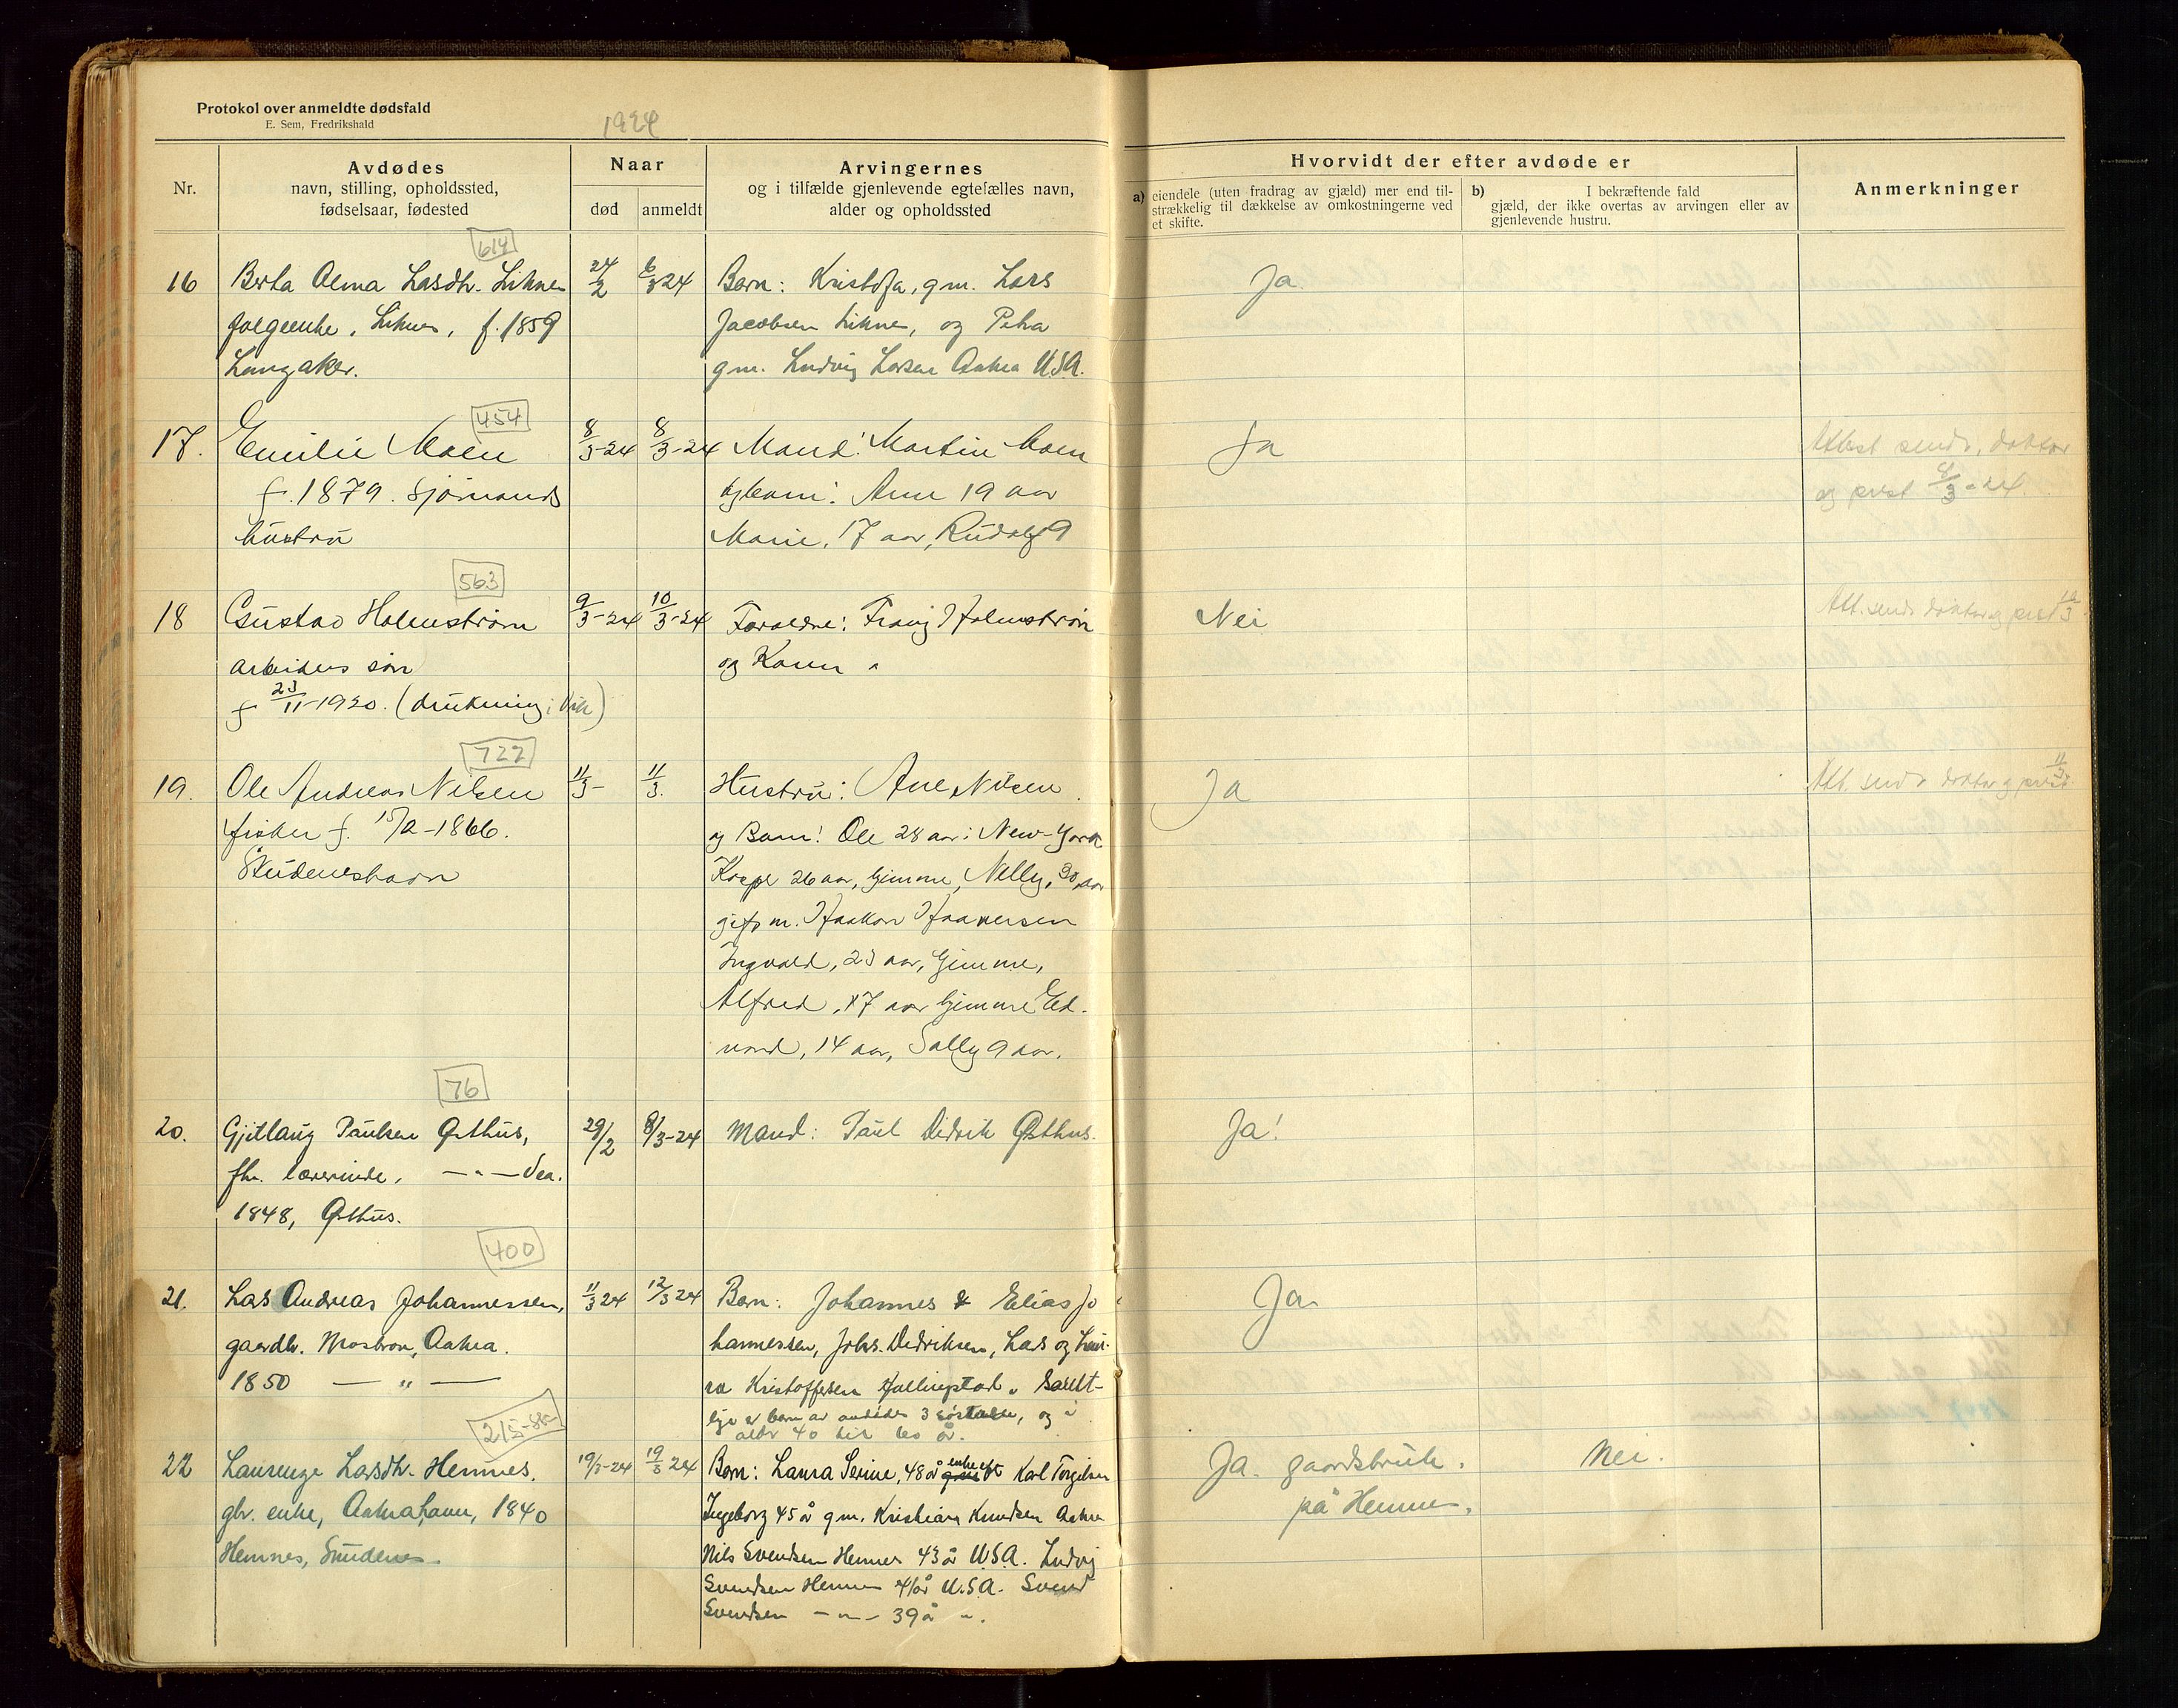 Protokol over anmeldte dødsfald
E. Sem, Fredrikshald
1924
Nr.
Avdødes
navn, stilling, opholdssted,
fødselsaar, fødested
Naar
død
anmeldt
Arvingernes
og i tilfælde gjenlevende egtefælles navn,
alder og opholdssted
Hvorvidt der efter avdøde er
a) eiendele (uten fradrag av gjæld) mer end til-
strækkelig til dækkelse av omkostningerne ved
et skifte.
b) I bekræftende fald
gjæld, der ikke overtas av arvingen eller av
gjenlevende hustru.
Anmerkninger
614
16 Berta Alma Larsdtr. Liknes
folgeenke, Liknes, f. 1859
Langaker.
24/2
6/3 24
Barn: Kristofa, gm. Lars
Jacobsen Liknes, og Petra
gm. Ludvig Larsen Aakra USA.
Ja.
454
17. Emilie Moen
f. 1879. Sjømands
hustru
8/3-24
8/3-24
Mand: Martin Moen
og barn: Anne 19 aar
Marie, 17 aar, Rudolf 9
Ja
Attest sendt, doktor
og prest 8/3-24.
563
18 Gustav Holmstrøm
arbeiders søn
f 23/11-1920. (drukning i Vik)
9/3-24
10/3-24
Foraeldre: Franz Holmstrøm
og Karen "
Nei
Att. sendt doktor og prest 10/3.
722
19. Ole Andreas Nilsen
fisker f. 15/2-1866.
Skudeneshavn
11/3-
11/3.
Hustru: Ane Nilsen.
og Barn: Ole 28 aar i New-York
Kasper 26 aar, hjemme, Nelly, 30 aar
gift m. Haakon Haaversen
Ingvald, 23 aar, hjemme,
Alfred, 17 aar hjemme Ed-
vard, 14 aar, Sally 9 aar.
Ja
Att. sendt doktor og prest 11/3.
76
20. Gjitlaug Paulsen Østhus,
fhv. lærerinde, — " — Vea.
1848, Østhus.
29/2
8/3-24
Mand: Paul Didrik Østhus.
Ja!
400
21. Lars Andreas Johannessen,
gaardbr. Mosbron, Aakra.
1850 — " —
11/3 24
12/3 24
Barn: Johannes & Elias Jo
hannessen, Johs. Didriksen, Lars og Lau-
ra Kristoffersen Hallingstad. Samt-
lige er barn av avdødes 3 søskende, og i
alder 40 til 60 år.
Ja.
215-85
22 Laurenze Larsdtr. Hemnes.
gbr. enke, Aakrahavn, 1840
Hemnes, Skudenes.
19/3-24
19/3 24
Barn: Laura Serine, 48 år enke eft Karl Torgilsen
Ingeborg 45 år gm. Kristian Knudsen Aakra
Nils Svendsen Hemnes 43 år USA. Ludvig
Svendsen Hemnes 41 år U.S.A. Svend
Svendsen - " - 39 år ".
Ja. gaardsbruk.
på Hemnes.
Nei.